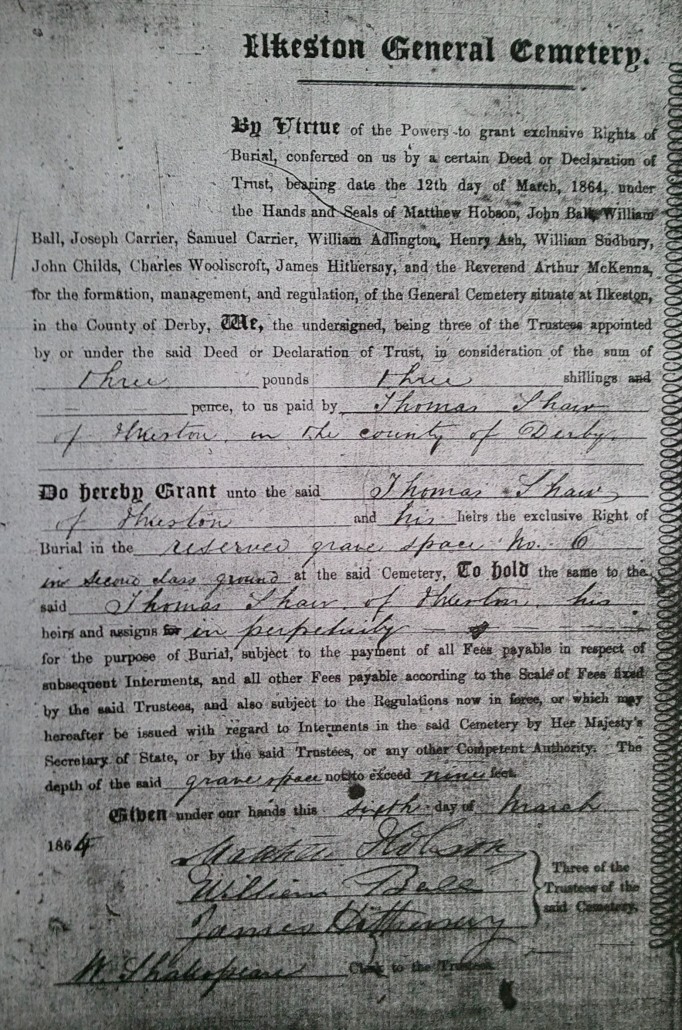 Ilkeston General Cemetery.
By Virtue of the Powers to grant exclusive Rights of
Burial, conferred on us by a certain Deed or Declaration of
Trust, bearing date the 12th day of March, 1864, under
the Hands and Seals of Matthew Hobson, John Ball, William
Ball, Joseph Carrier, Samuel Carrier, William Adlington, Henry Ash, William Sudbury,
John Childs, Charles Wooliscroft, James Hithersay, and the Reverend Arthur McKenna,
for the formation, management, and regulation, of the General Cemetery situate at Ilkeston,
in the County of Derby, We, the undersigned, being three of the Trustees appointed
by or under the said Deed or Declaration of Trust, in consideration of the sum of
three pounds three shillings and
— pence, to us paid by Thomas Shaw
of Ilkeston, in the county of Derby.
Do hereby Grant unto the said Thomas Shaw
of Ilkeston and his heirs the exclusive Right of
Burial in the reserved grave space No. 6
in Second class ground at the said Cemetery, To hold the same to the
said Thomas Shaw of Ilkeston, his
heirs and assigns for in perpetuity
for the purpose of Burial, subject to the payment of all Fees payable in respect of
subsequent Interments, and all other Fees payable according to the Scale of Fees fixed
by the said Trustees, and also subject to the Regulations now in force, or which may
hereafter be issued with regard to Interments in the said Cemetery by Her Majesty's
Secretary of State, or by the said Trustees, or any other Competent Authority. The
depth of the said grave space not to exceed nine feet.
Given under our hands this sixth day of March
1864
Matthew Hobson
William Ball
James Hithersay
Three of the
Trustees of the
said Cemetery.
W. Shakespeare Clerk to the Trustees